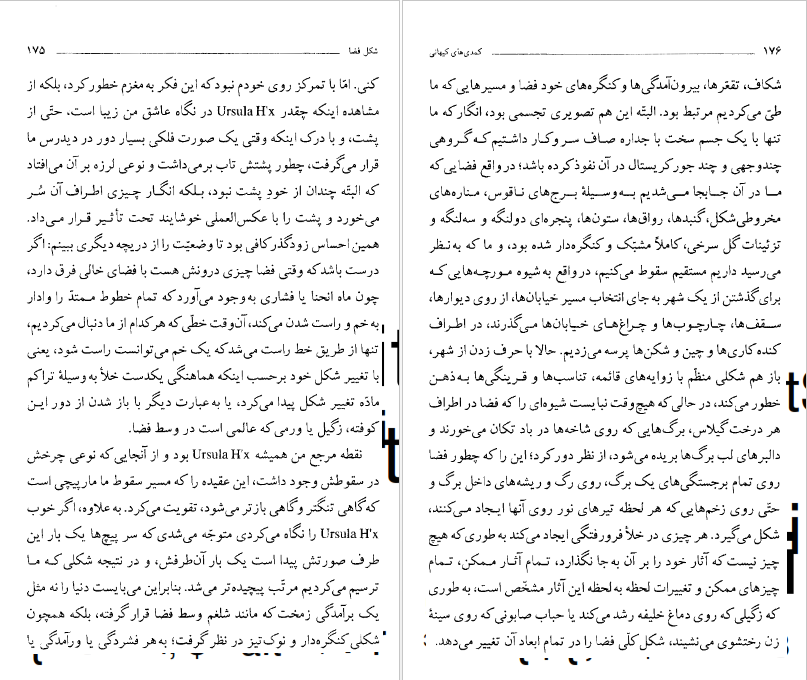 شکل فضا ۱۷۵
کنی. امّا با تمرکز روی خودم نبود که این فکر به مغزم خطور کرد، بلکه از
مشاهده اینکه چقدر Ursula H'x در نگاه عاشق من زیبا است، حتّی از
پشت، و با درک اینکه وقتی یک صورت فلکی بسیار دور در دیدرس ما
قرار می‌گرفت، چطور پشتش تاب برمی‌داشت و نوعی لرزه بر آن می‌افتاد
که البتّه چندان از خودِ پشت نبود، بلکه انگار چیزی اطراف آن سُر
می‌خورد و پشت را با عکس‌العملی خوشایند تحت تأثیر قرار می‌داد.
همین احساس زودگذر کافی بود تا وضعیّت را از دریچه دیگری ببینم: اگر
درست باشد که وقتی فضا چیزی درونش هست با فضای خالی فرق دارد،
چون ماه انحنا یا فشاری به‌وجود می‌آورد که تمام خطوط ممتدّ را وادار
به خم و راست شدن می‌کند، آن‌وقت خطّی که هرکدام از ما دنبال می‌کردیم،
تنها از طریق خط راست می‌شد که یک خم می‌توانست راست شود، یعنی
با تغییر شکل خود برحسب اینکه هماهنگی یکدست خلأ به وسیلهٔ تراکم
مادّه تغییر شکل پیدا می‌کرد، یا به عبارت دیگر با باز شدن از دور این
کوفته، زگیل یا ورمی که عالمی است در وسط فضا.
نقطه مرجع من همیشه Ursula H'x بود و از آنجایی که نوعی چرخش
در سقوطش وجود داشت، این عقیده را که مسیر سقوط ما مارپیچی است
که گاهی تنگتر و گاهی بازتر می‌شود، تقویت می‌کرد. به علاوه، اگر خوب
Ursula H'x را نگاه می‌کردی متوجّه می‌شدی که سر پیچ‌ها یک بار این
طرف صورتش پیدا است یک بار آن‌طرفش، و در نتیجه شکلی که ما
ترسیم می‌کردیم مرتّب پیچیده‌تر می‌شد. بنابراین می‌بایست دنیا را نه مثل
یک برآمدگی زمخت که مانند شلغم وسط فضا قرار گرفته، بلکه همچون
شکلی کنگره‌دار و نوک‌تیز در نظر گرفت؛ به هر فشردگی یا ورآمدگی یا
۱۷۶ کمدی‌های کیهانی
شکاف، تقعّرها، بیرون‌آمدگی‌ها و کنگره‌های خود فضا و مسیرهایی که ما
طیّ می‌کردیم مرتبط بود. البتّه این هم تصویری تجسمی بود، انگار که ما
تنها با یک جسم سخت با جداره صاف سر و کار داشتیم که گروهی
چندوجهی و چند جور کریستال در آن نفوذ کرده باشد؛ در واقع فضایی که
ما در آن جابجا می‌شدیم به‌وسیلهٔ برج‌های ناقوس، مناره‌های
مخروطی‌شکل، گنبدها، رواق‌ها، ستون‌ها، پنجره‌ای دولنگه و سه‌لنگه و
تزئینات گل سرخی، کاملاً مشبّک و کنگره‌دار شده بود، و ما که به نظر
می‌رسید داریم مستقیم سقوط می‌کنیم، در واقع به شیوه مورچه‌هایی که
برای گذشتن از یک شهر به جای انتخاب مسیر خیابان‌ها، از روی دیوارها،
سقف‌ها، چارچوب‌ها و چراغ‌های خیابان‌ها می‌گذرند، در اطراف
کنده کاری‌ها و چین و شکن‌ها پرسه می‌زدیم. حالا با حرف زدن از شهر،
باز هم شکلی منظّم با زوایه‌های قائمه، تناسب‌ها و قرینگی‌ها به‌ذهن
خطور می‌کند، در حالی که هیچ‌وقت نبایست شیوه‌ای را که فضا در اطراف
هر درخت گیلاس، برگ‌هایی که روی شاخه‌ها در باد تکان می‌خورند و
دالبرهای لب برگ‌ها بریده می‌شود، از نظر دور کرد؛ این را که چطور فضا
روی تمام برجستگی‌های یک برگ، روی رگ و ریشه‌های داخل برگ و
حتّی روی زخم‌هایی که هر لحظه تیرهای نور روی آنها ایجاد می‌کنند،
شکل می‌گیرد. هر چیزی در خلأ فرورفتگی ایجاد می‌کند به طوری که هیچ
چیز نیست که آثار خود را بر آن به جا نگذارد، تمام آثار ممکن، تمام
چیزهای ممکن و تغییرات لحظه به لحظه این آثار مشخّص است، به طوری
که زگیلی که روی دماغ خلیفه رشد می‌کند یا حباب صابونی که روی سینهٔ
زن رختشوی می‌نشیند، شکل کلّی فضا را در تمام ابعاد آن تغییر می‌دهد.